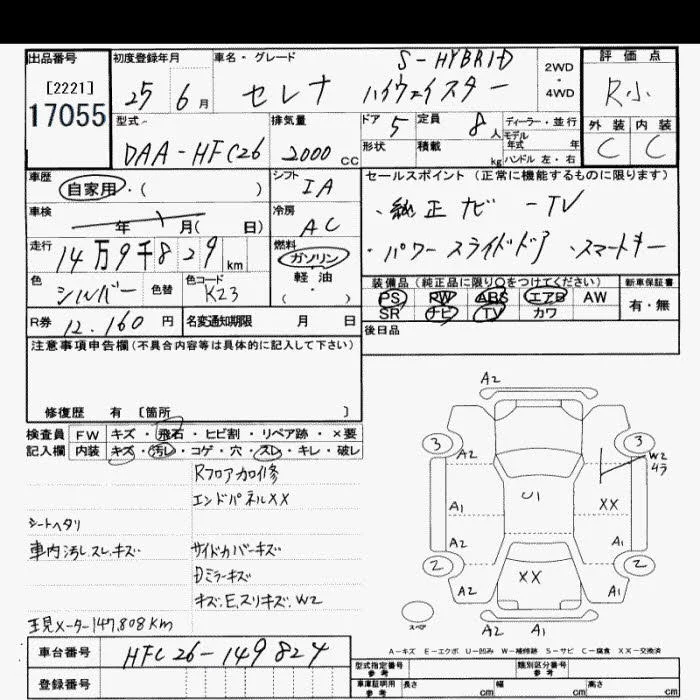 出品番号
[2221]
17055
初度登録年月
25 6月
車名・グレード
S-HYBRID
セレナ ハイウェイスター
2WD
・
4WD
評価点
R小
外装 内装
C C
型式
DAA-HFC26
排気量
2000 CC
ドア 5
定員 8人
形状
積載 kg
ディーラー・並行
モデル年式 年
ハンドル 左・右
車歴
自家用・( )
シフト IA
車検
年 月( 日)
冷房 AC
走行
14万9千829km
燃料
ガソリン
軽・油
( )
色 シルバー 色替
色コード K23
R券 12.160円
名変通知期限 月 日
セールスポイント(正常に機能するものに限ります)
・純正ナビ-TV
・パワースライドドア ・スマートキー
装備品(純正品に限り○をつけてください)
PS PW ABS エアB AW
SR ナビ TV カワ
新車保証書
有・無
後日品
注意事項申告欄(不具合内容等は具体的に記入して下さい)
修復歴 有 〔箇所 〕
検査員 FW キズ・飛石・ヒビ割・リペア跡・×要
記入欄 内装 キズ・汚レ・コゲ・穴・スレ・キレ・破レ
Rフロア加修
エンドパネルXX
シートヘタリ
車内汚レスレキズ
サイドカバーキズ
Dミラーキズ
キズ.E.スリキズ.W2
現メーター147,808Km
A2
3 3
A2
W2
4ラ
U1
A1 XX
A2 A1
2 2
XX
A2 A1
スペア
A2 A1
A-キズ E-エクボ U-凹み W-補修跡 S-サビ C-腐食 XX-交換済
車台番号
HFC26-149824
登録番号
型式指定番号
参考
類別区分番号
参考
車庫証明用
参考
長さ cm 幅 cm 高さ cm